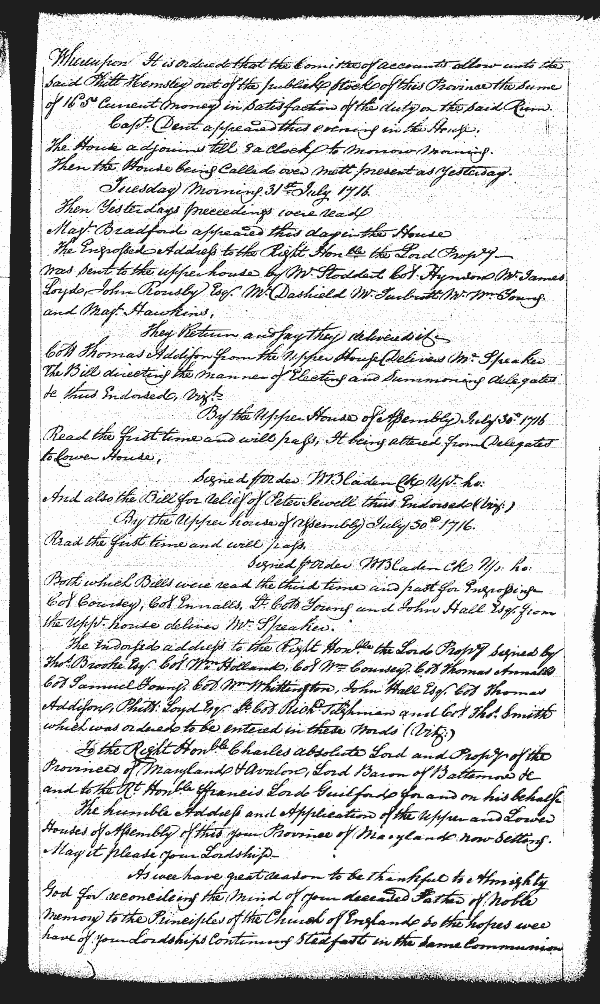 Whereupon It is ordered that the Comittee of accounts allow unto the
said Phill Hemsley out of the publick Stock of this Province the sume
of 16 5d Current money in Satisfaction of the duty on the said Rum.
Capt. Dent appeared this evening in the House.
The House adjourns till 8 a Clock to Morrow Morning.
Then the House being Called over mett present as Yesterday.
Tuesday Morning 31st July 1716
Then Yesterdays proceedings were read
Majr. Bradford appeared this day in the House
The Engrossed Address to the Right Honble the Lord Propry
was sent to the upper house by Mr. Stoddert Col Hynson Mr. James
Loyd, John Rousby Esqr. Mr. Dashield Mr. Turbutt Mr. Wm. Young
and Majr. Hawkins,
They Return and say they delivered it
Coll Thomas Addison from the Upper House Delivers Mr. Speaker
the Bill directing the manner of Electing and Summoning delegates
&c thus Endorsed, Vizt.
By the Upper House of Assembly July 30th 1716
Read the first time and will pass, It being altered from Delegates
to Lower House,
Signed p Order WBladen Ck Upr. ho:
And also the Bill for relief of Peter Sewell thus Endorsed (Viz:)
By the Upper house of Assembly July 30th 1716.
Read the first time and will pass.
Signed p Order WBladen Ck Up. ho:
Both which Bills were read the third time and past for Engrossing
Col Coursey, Col Ennalls, Lt. Coll Young and John Hall Esqr. from
the Uppr. house deliver Mr. Speaker.
The Endorsed address to the Right Honble the Lord Propry signed by
Thos. Brooke Esqr. Col Wm. Holland, Col Wm. Coursey, Col Thomas Annalls
Col Samuel Young Col Wm Whittington, John Hall Esqr. Col Thomas
Addison, Phill: Loyd Esqr. Lt Col Richd. Tilghman and Col Thos. Smith
which was ordered to be entered in these Words (Viz:)
To the Right Honble Charles absolute Lord and Propry of the
Provinces of Maryland & Avalon, Lord Baron of Baltemore &c
and to the Rt. Honble Francis Lord Guilford for and on his behalfe
The humble Address and Application of the Upper and Lower
Houses of Assembly of this your Province of Maryland now Setting.
May it please your Lordship
As wee have great reason to be thankful to Almighty
God for reconcileing the Mind of your deceased Father of Noble
Memory to the Principles of the Church of England so the hopes wee
have of your Lordships Continuing Stedfast in the same Communion